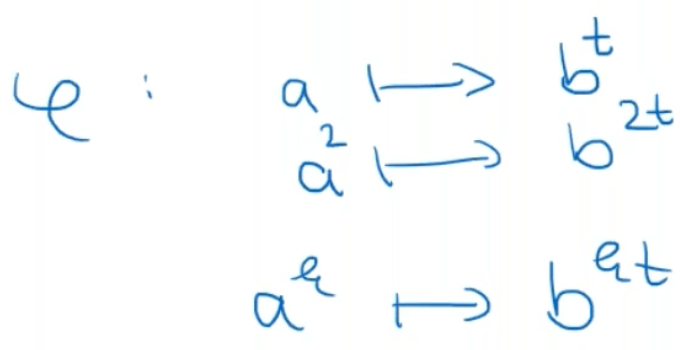 φ : a ↦ b^t
a^2 ↦ b^{2t}
a^k ↦ b^{kt}